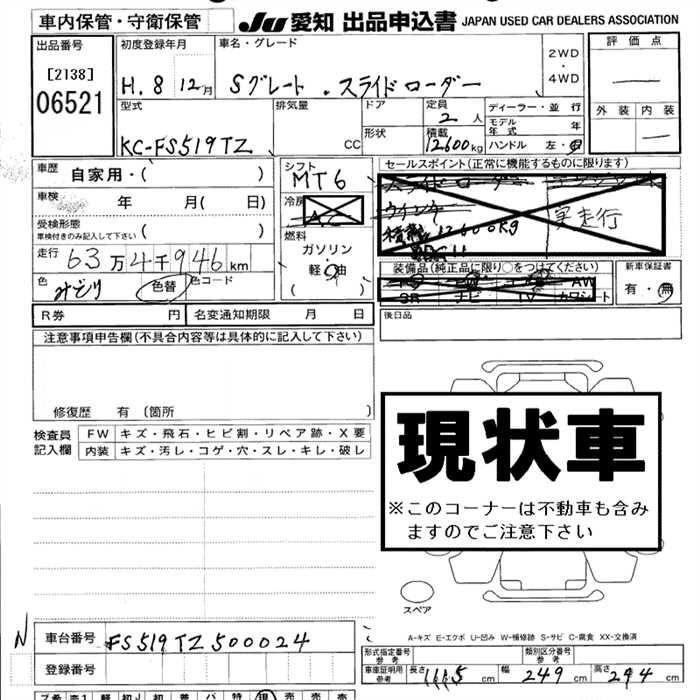 車内保管・守衛保管 JU 愛知 出品申込書 JAPAN USED CAR DEALERS ASSOCIATION
出品番号 初度登録年月 車名・グレード 2WD・4WD 評価点
[2138] H.8 12月 Sグレート・スライドローダー
06521
型式 排気量 ドア 定員 ディーラー・並行 外装 内装
2人 モデル年式 年
形状 積載 ハンドル 左・右
KC-FS519TZ CC 12600kg
車歴 自家用・( ) シフト セールスポイント(正常に機能するものに限ります)
MT6
スライドローダー
車検 年 月( 日) 冷房
AC
ウインチ 実走行
受検形態 車検付きのみ記入して下さい ( ) 燃料 積載 12600kg
走行 63万4千946km ガソリン・軽油
( )
装備品(純正品に限り○をつけてください) 新車保証書
色 みどり 色替 色コード AW 有・無
SR ナビ TV カワシート
R券 円 名変通知期限 月 日 後日品
注意事項申告欄(不具合内容等は具体的に記入して下さい)
修復歴 有 (箇所 )
検査員記入欄 FW キズ・飛石・ヒビ割・リペア跡・X要
内装 キズ・汚レ・コゲ・穴・スレ・キレ・破レ
現状車
※このコーナーは不動車も含みますのでご注意下さい
スペア
N 車台番号 FS519TZ500024
A-キズ E-エクボ U-凹み W-補修跡 S-サビ C-腐食 XX-交換済
登録番号 形式指定番号 参考 類別区分番号 参考
車庫証明用 参考 長さ cm 幅 249cm 高さ cm